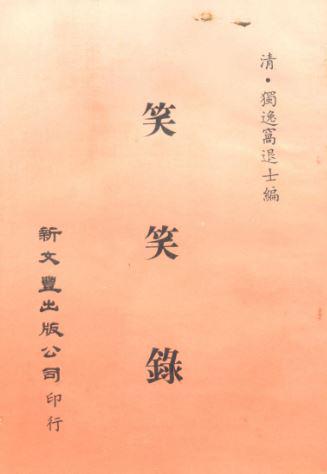 清•獨逸窩退士編
笑笑錄
新文豐出版公司印行